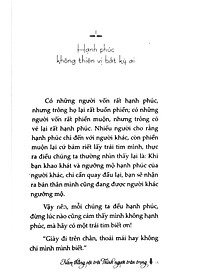 Hạnh phúc
không thiên vị bất kỳ ai
Có những người vốn rất hạnh phúc,
nhưng trông họ lại rất buồn phiền; có những
người vốn rất phiền muộn, nhưng trông có
vẻ lại rất hạnh phúc. Nhiều người cho rằng
hạnh phúc chỉ đến với người khác, còn phiền
muộn lại cứ bám riết lấy trái tim mình, thực
ra điều chúng ta thường nhìn thấy lại là: Khi
bạn khao khát và ngưỡng mộ hạnh phúc của
người khác, chỉ cần quay đầu lại, bạn sẽ nhận
ra bản thân mình cũng đang được người khác
ngưỡng mộ.
Vậy nên, mỗi chúng ta đều hạnh phúc,
đừng lúc nào cũng cảm thấy mình không hạnh
phúc, mà hãy có một trái tim biết ơn!
"Giày đi trên chân, thoải mái hay không
chỉ mình mình biết."